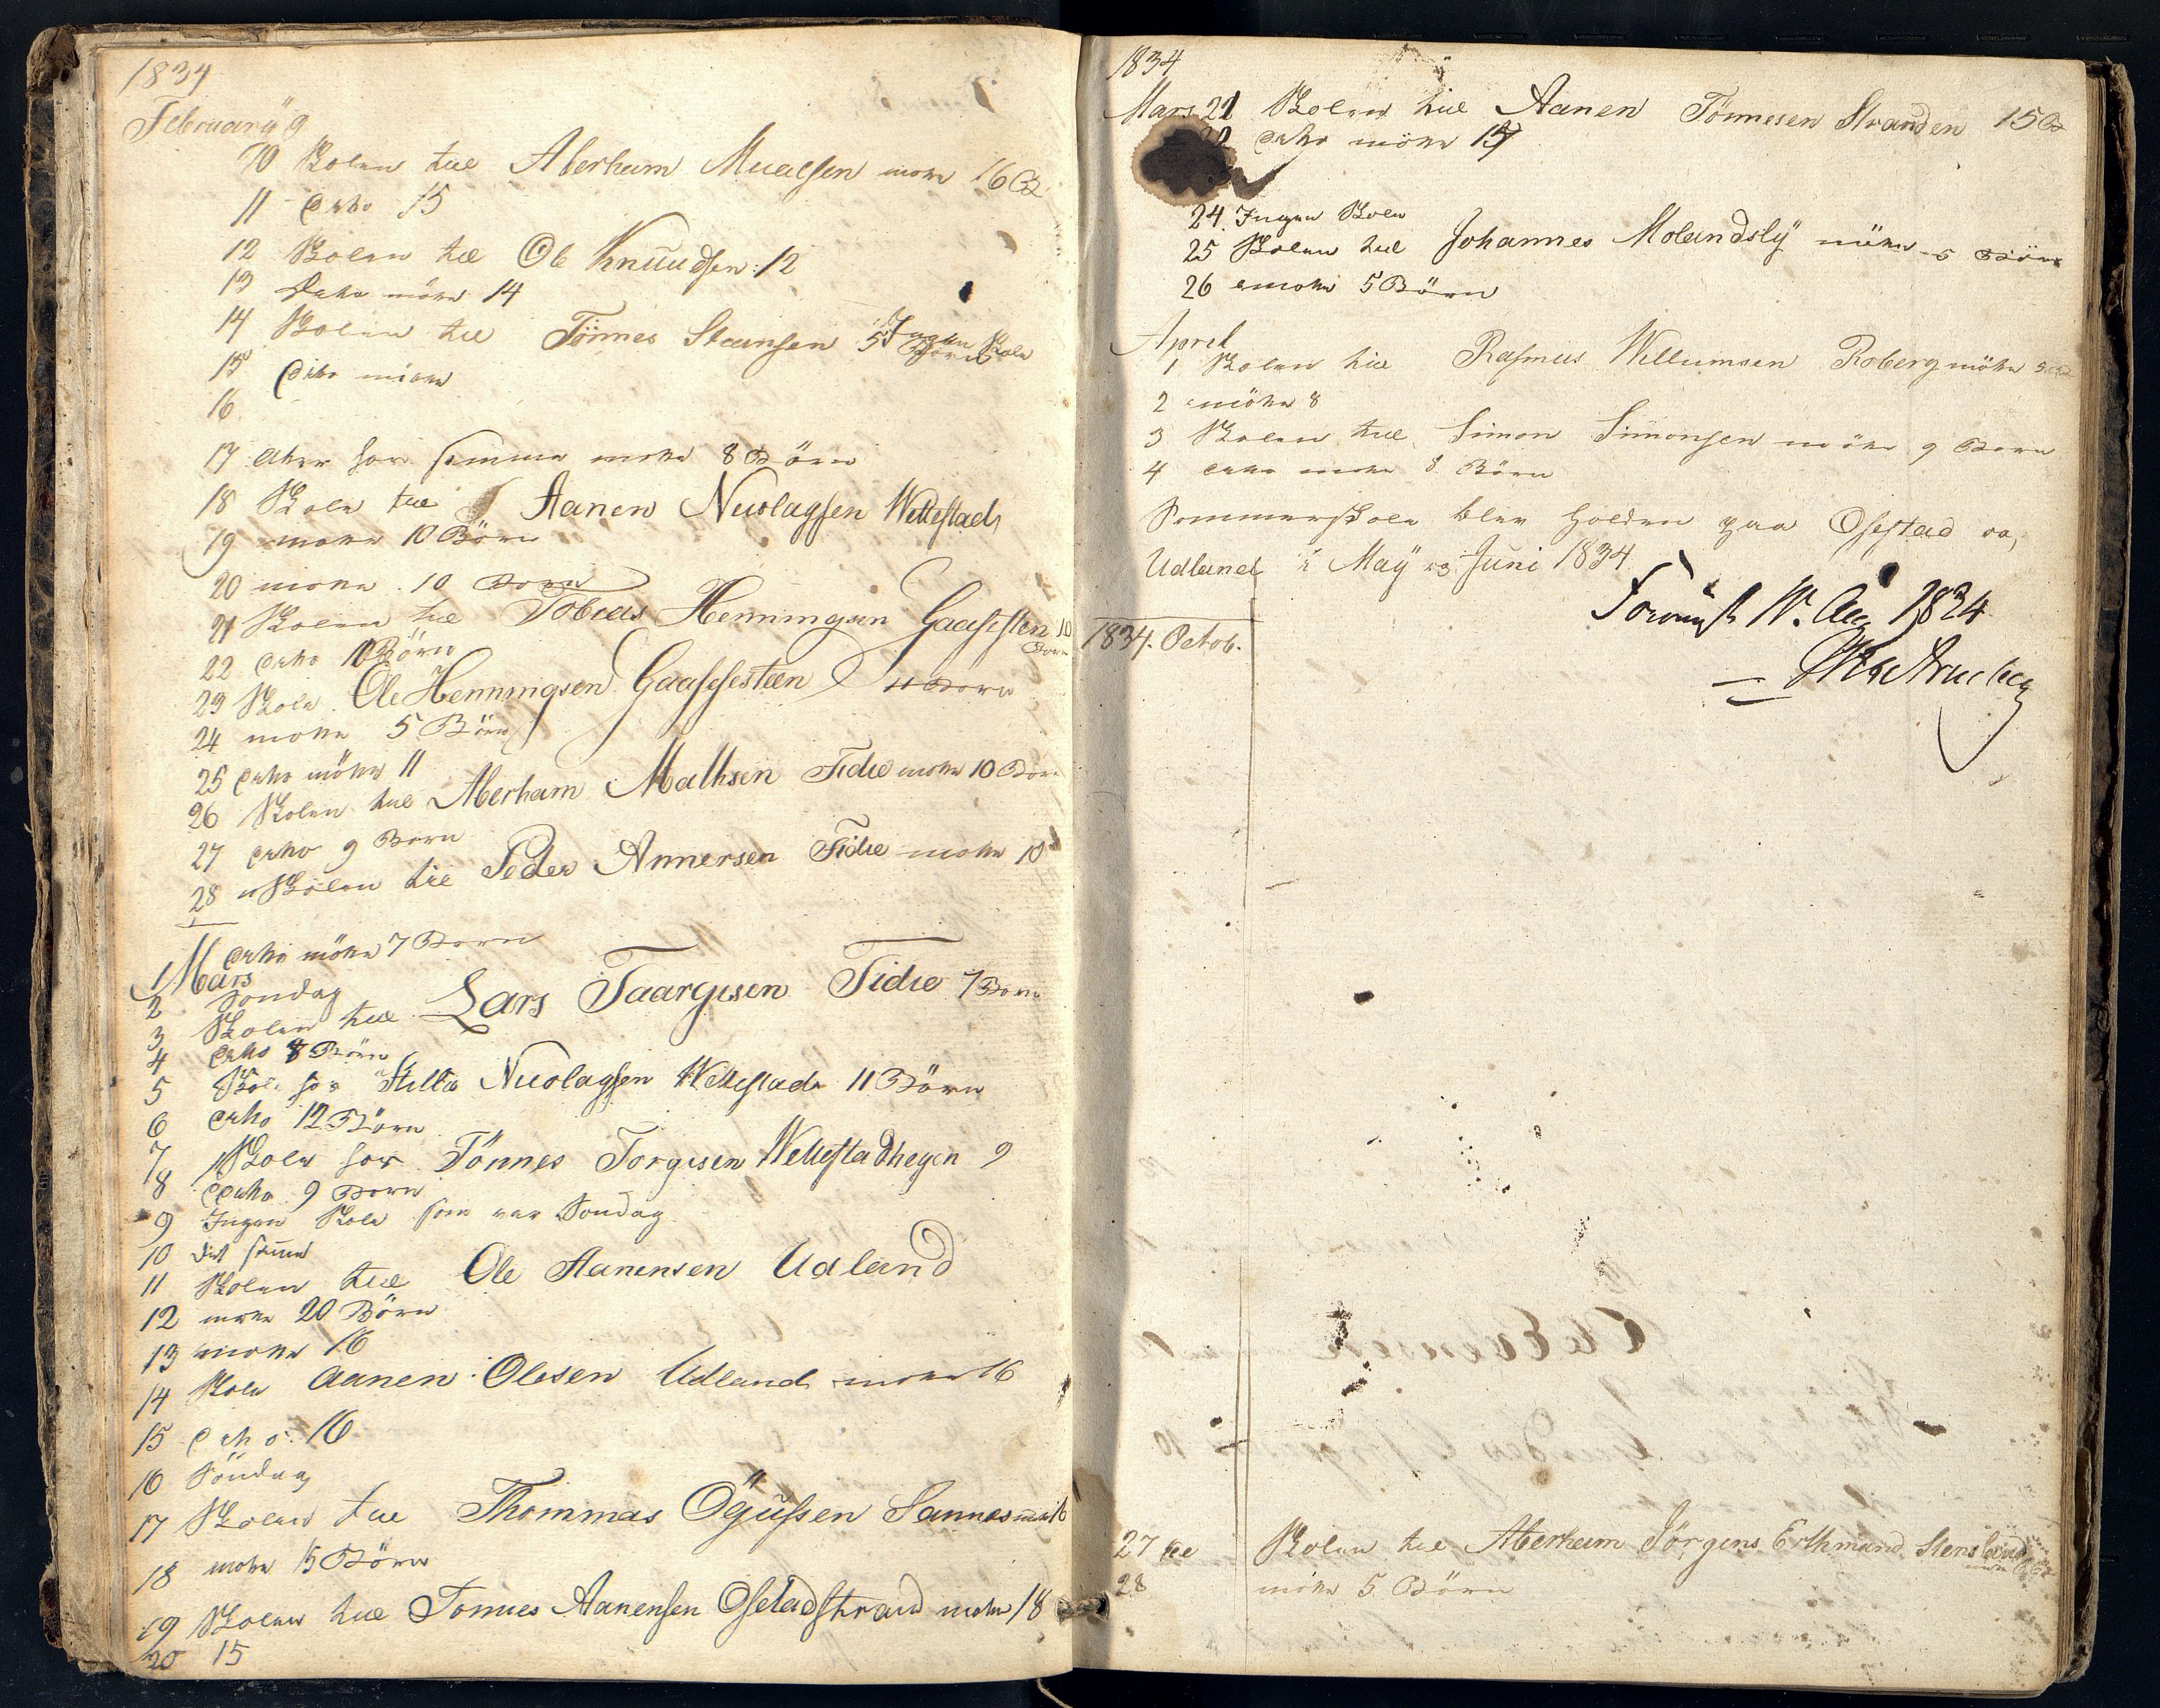 1834
February 9
10 Skolen til Aberham Mualsen möte 16 B
11 dito 15
12 Skolen til Ole Knuudsen 12
13 dito möte 14
14 Skolen til Tönnes Staansen 5 Börn
15 dito möte
Ingen Skole
16
17 atter hos samme möte 8 Börn
18 Skole til Aanen Nicolaysen Wettestad
19 möte 10 Börn
20 möte 10 Born
21 Skolen til Tobias Henningsen Gaasesten 10 Born
22 dito 10 Börn
23 Skole Ole Henningsen Gaasesteen 11 Born
24 möte 5 Börn
25 dito möte 11
26 Skolen til Aberham Mathsen Fidie möte 10 Born
27 dito 9 Born
28 Skolen til Peder Annersen Fidie möte 10
Mars
1 dito möte 7 Born
2 Sondag
3 Skolen til Lars Taargisen Fidie 7 Born
4 dito 8 Börn
5 Skole hos Nicolaysen Wettestad 11 Börn
6 dito 12 Börn
7 Skole hos Tönnes Torgisen Wettestadhegen 9
8 dito 9 Born
9 Ingen Skole som var Sondag
10 det samme
11 Skolen til Ole Aanensen Udland
12 möte 20 Börn
13 möte 16
14 Skole Aanen Olesen Udland möte 16
15 dito 16
16 Söndag
17 Skolen til Thommas Ögüssen Sannes möte 16
18 möte 15 Börn
19 Skolen til Tonnes Aanensen Osestadstrand möte 18
20 15
1834
Mars 21 Skolen til Aanen Tönnesen Stranden 15 B
22 dito möte 15
24 Ingen Skole
25 Skolen til Johannes Molandsly möte 5 Börn
26 möte 5 Börn
Aprel
1 Skolen til Rasmus Willumsen Roberg möte
2 möte 8
3 Skolen til Simon Simonsen möte 9 Born
4 dito möte 8 Börn
Sommerskole blev holden paa Osestad og
Udland i May og Juni 1834
Aug 1834
1834. Octob.
27 Skolen til Aberham Jörgens Erthmand Stensland
28 möte 5 Börn